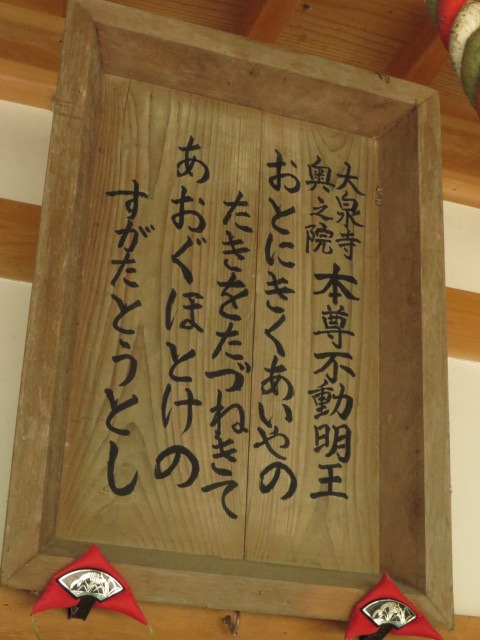 大泉寺
奥之院
本尊不動明王
おとにきくあいやの
たきをたづねきて
あおぐほとけの
すがたとうとし